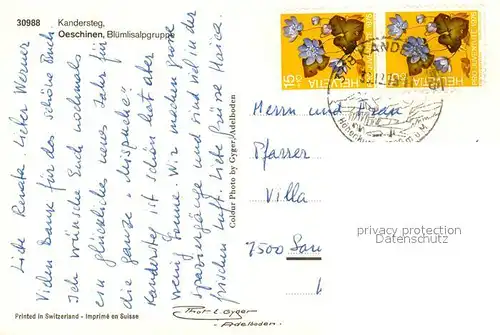 30988 Kandersteg,
Oeschinen, Blümlisalpgruppe
Liebe Renata. Lieber Werner
Vielen Dank für das schöne Buch.
Ich wünsche Euch nochmals
ein glückliches neues Jahr für
die ganze "Mispuche"
Kandersteg ist schön hat aber
wenig Sonne. Wir machen grosse
spaziergänge und sind viel in der
frischen Luft. Liebe Grüsse
Colour Photo by Gyger, Adelboden
HELVETIA
HELVETIA
Herrn und Frau
Pfarrer
Villa
7500
privacy protection
Datenschutz
Printed in Switzerland - Imprimé en Suisse
Phot. E. Gyger
Adelboden.